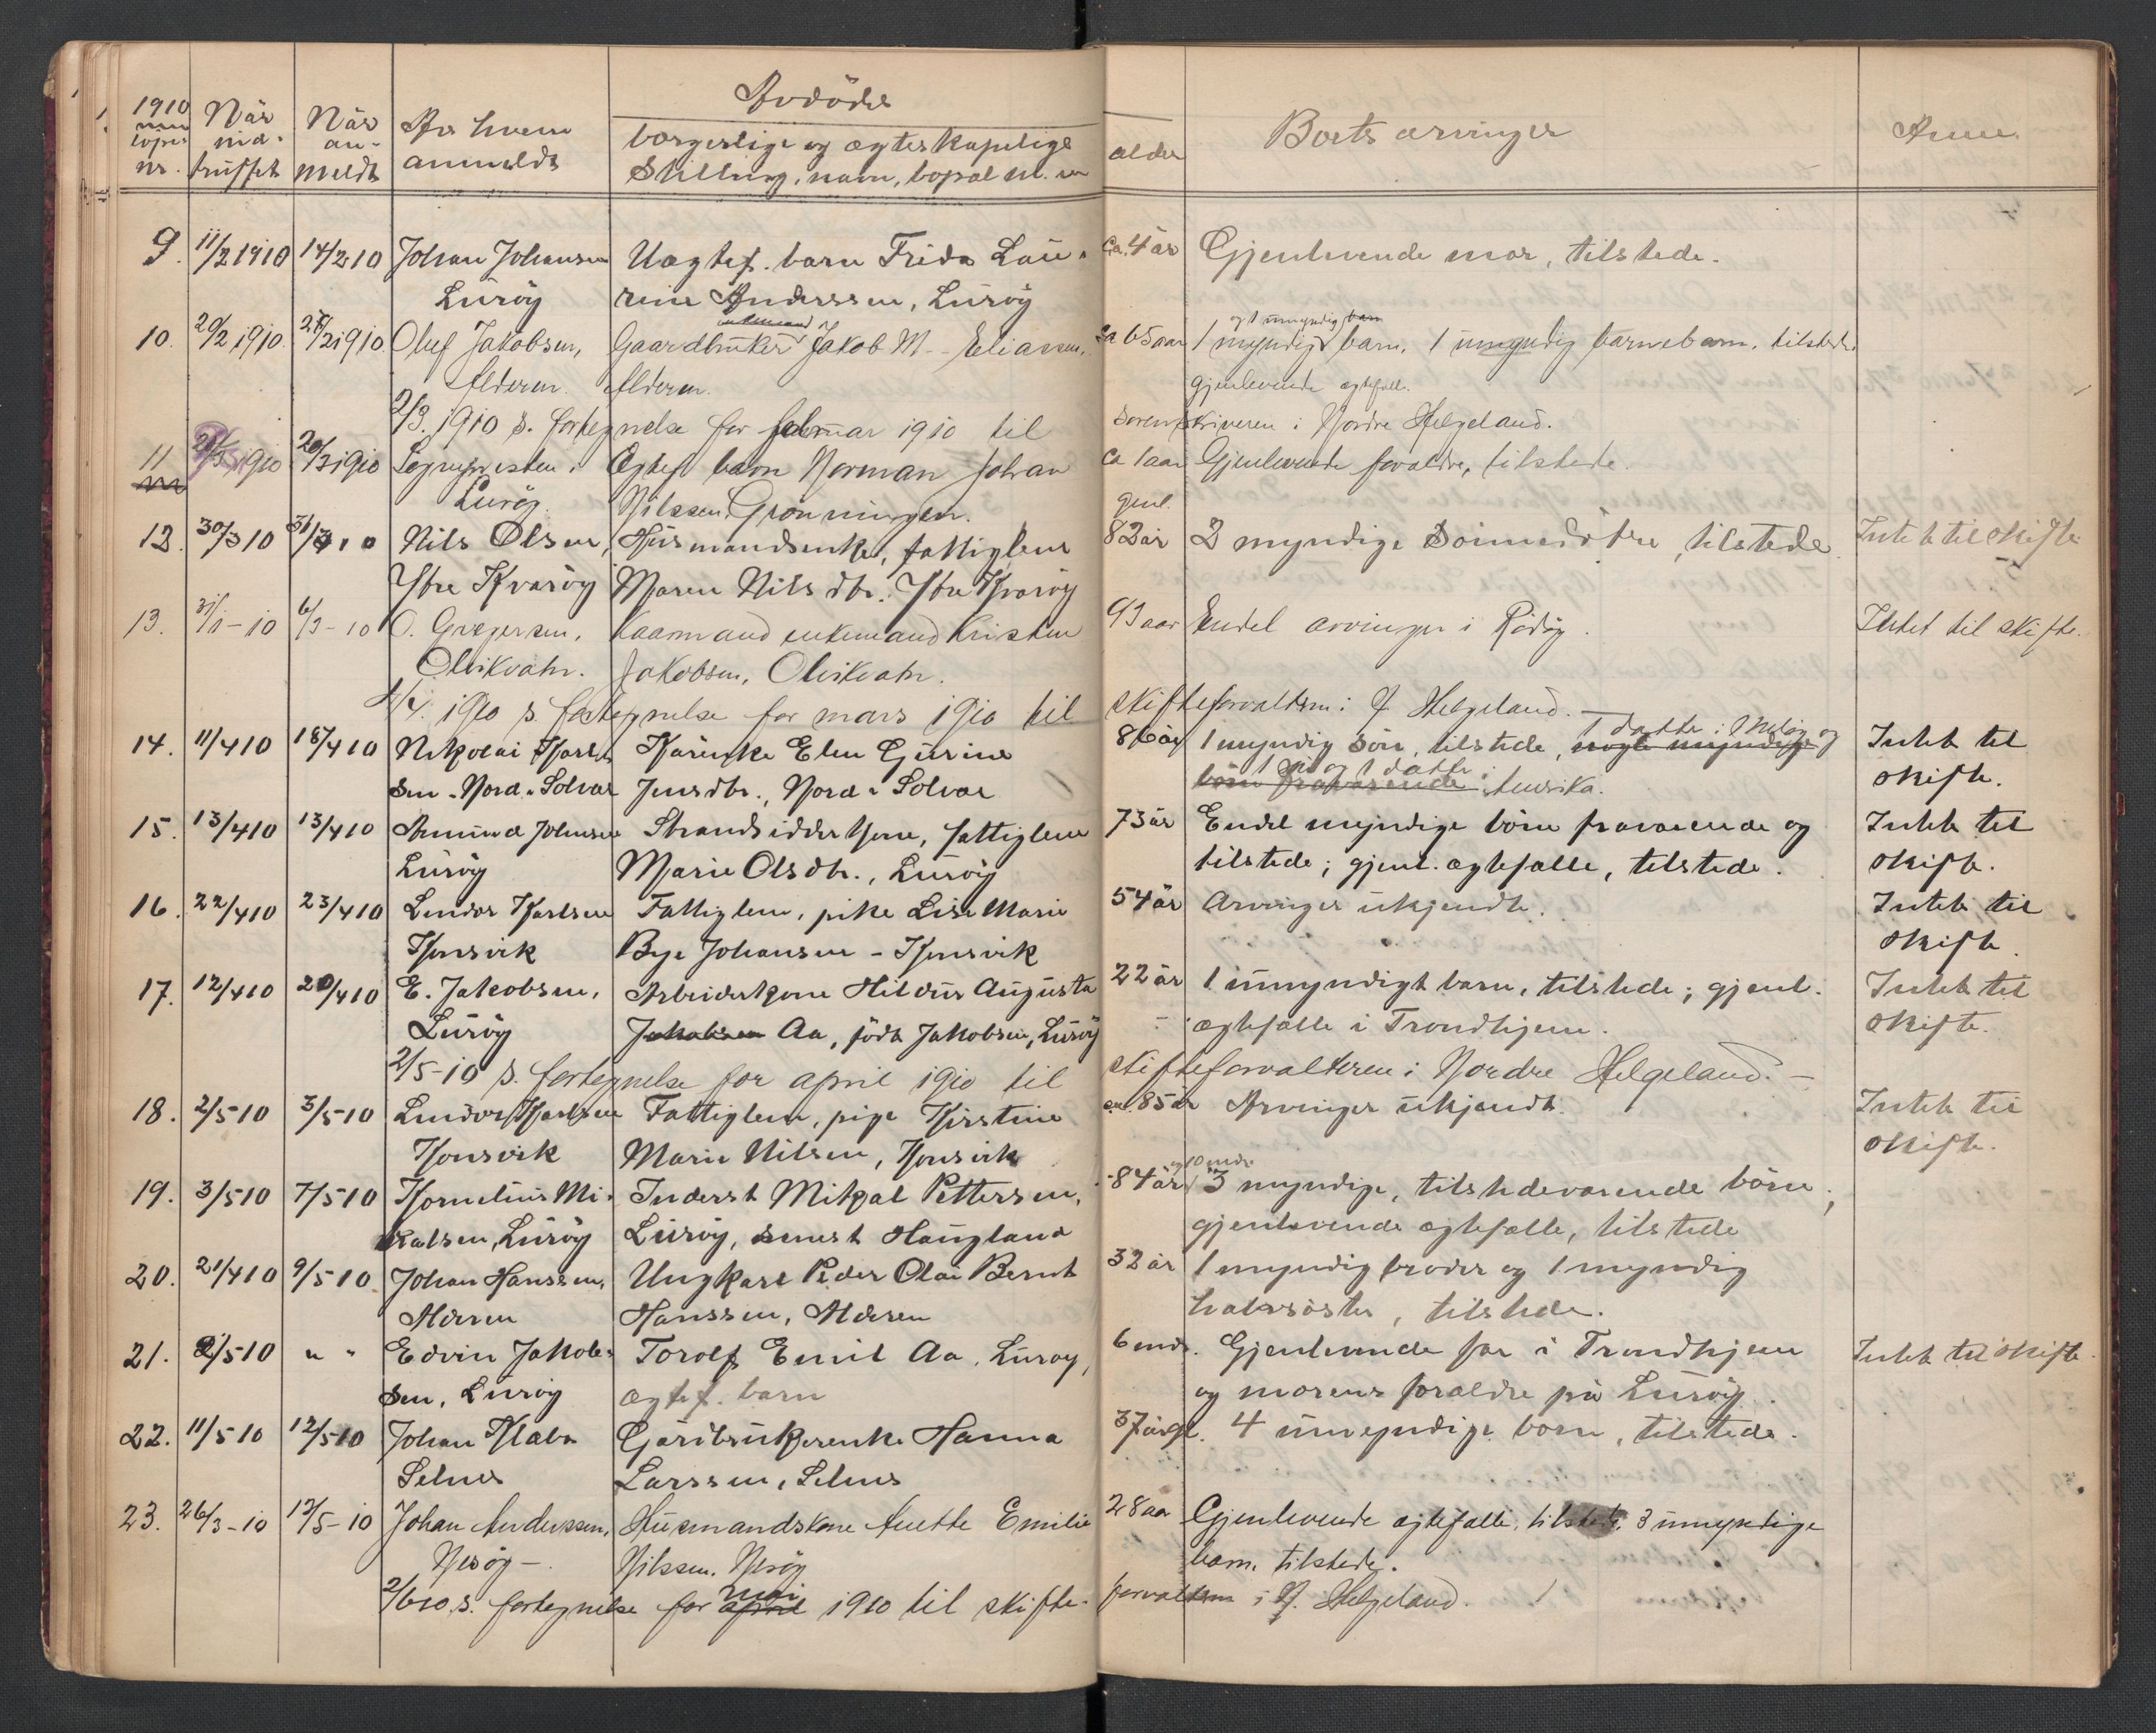 1910
löpe
nr.
Når
ind-
truffet
Når
an-
meldt
Av hvem
anmeldt
Avdödes
borgerlige og ægteskapelige
Stilling, navn, bopæl m. m
alder
Boets arvinger
Anm.
9. 11/2 1910 14/2 10 Johan Johansen Uægtef. barn Frida Lau- ca. 4 år Gjenlevende mor, tilstede.
Luröy rine Anderssen, Luröy
enkemand og 1 umyndig barn
10. 20/2 1910 28/2 1910 Oluf Jakobsen, Gaardbruker Jakob M. Eliassen, ca 65 aar 1 myndig barn, 1 umyndig barnebarn, tilstede.
Alderen. Alderen. gjenlevende ægtefæll.
2/3. 1910 s. fortegnelse for februar 1910 til sorenskriveren i Nordre Helgeland.
11 1910 20/3 1910 Sognepresten i Ægtef barn Norman Johan ca 1 aar Gjenlevende forældre, tilstede.
Luröy. Nilssen, Grönningen. gml.
12. 30/3 10 31/3 10 Nils Olsen, Husmandsenke, fattiglem 82 år 2 myndige sönnedötre, tilstede. Intet til skifte
Ytre Kvaröy Maren Nilsdtr. Ytre Kvaröy
13. 31/1-10 6/3-10 O. Gregersen, Kaarmand enkemand Kristen 91 aar Endel arvinger i Rödöy. Intet til skifte.
Olvikvatn. Jakobsen, Olvikvatn.
1/4. 1910 s. fortegnelse for mars 1910 til skifteforvalteren i N. Helgeland.
1 datter i Melöy og
14. 11/4 10 18/4 10 Nikolai Karl- Kårenke Elen Gurine 86 år 1 myndig sön, tilstede, nogle myndige Intet til
sen. Nord-Solvær Jensdtr., Nord-Solvær börn fraværende 1 og 1 datter i Amerika. skifte.
15. 13/4 10 13/4 10 Amund Johnsen Strandsidderkone, fattiglem 73 år Endel myndige börn fraværende og Intet til
Luröy Marie Olsdtr., Luröy tilstede; gjenl. ægtefælle, tilstede. skifte.
16. 22/4 10 23/4 10 Lindor Karlsen Fattiglem, pike Lise Marie 54 år Arvinger ukjendt. Intet til
Konsvik Bye Johansen - Konsvik skifte.
17. 12/4 10 20/4 10 E. Jakobsen, Arbeiderkone Hildur Augusta 22 år 1 umyndigt barn, tilstede; gjenl. Intet til
Luröy Jakobsen Aa, födt Jakobsen, Luröy ægtefælle i Trondhjem. skifte.
2/5-10 s. fortegnelse for april 1910 til skifteforvalteren i Nordre Helgeland.
18. 2/5 10 3/5 10 Lindor Karlsen Fattiglem, pige Kirstine 85 år Arvinger ukjendt. Intet til
Konsvik Marie Nilsen, Konsvik skifte.
og 10 mdr.
19. 3/5 10 7/5 10 Kornelius Mi- Inderst Mikal Pettersen, 84 år 3 myndige, tilstedeværende börn;
kalsen, Luröy Luröy, senest Haugland gjenlevende ægtefælle, tilstede
20. 21/4 10 9/5 10 Johan Hanssen, Ungkarl Peder Olai Bernt 32 år 1 myndig broder og 1 myndig
Alderen Hanssen, Alderen halvsöster, tilstede.
21. 2/5 10 " " Edvin Jakob- Torolf Emil Aa, Luröy, 6 mdr. Gjenlevende far i Trondhjem Intet til skifte.
sen, Luröy ægtef. barn og morens forældre på Luröy.
22. 11/5 10 12/5 10 Johan Klabo Gårdbrukerenke Hanna 37 år gl. 4 umyndige börn, tilstede.
Selnes Larssen, Selnes
23. 26/3-10 12/5-10 Johan Anderssen, Husmandskone Anette Emilie 28 aar Gjenlevende ægtefælle, tilstede, 3 umyndige
Nesöy -. Nilssen. Nesöy barn, tilstede.
mai
2/6 10. s. fortegnelse for april 1910 til skifte- forvalteren i N. Helgeland.